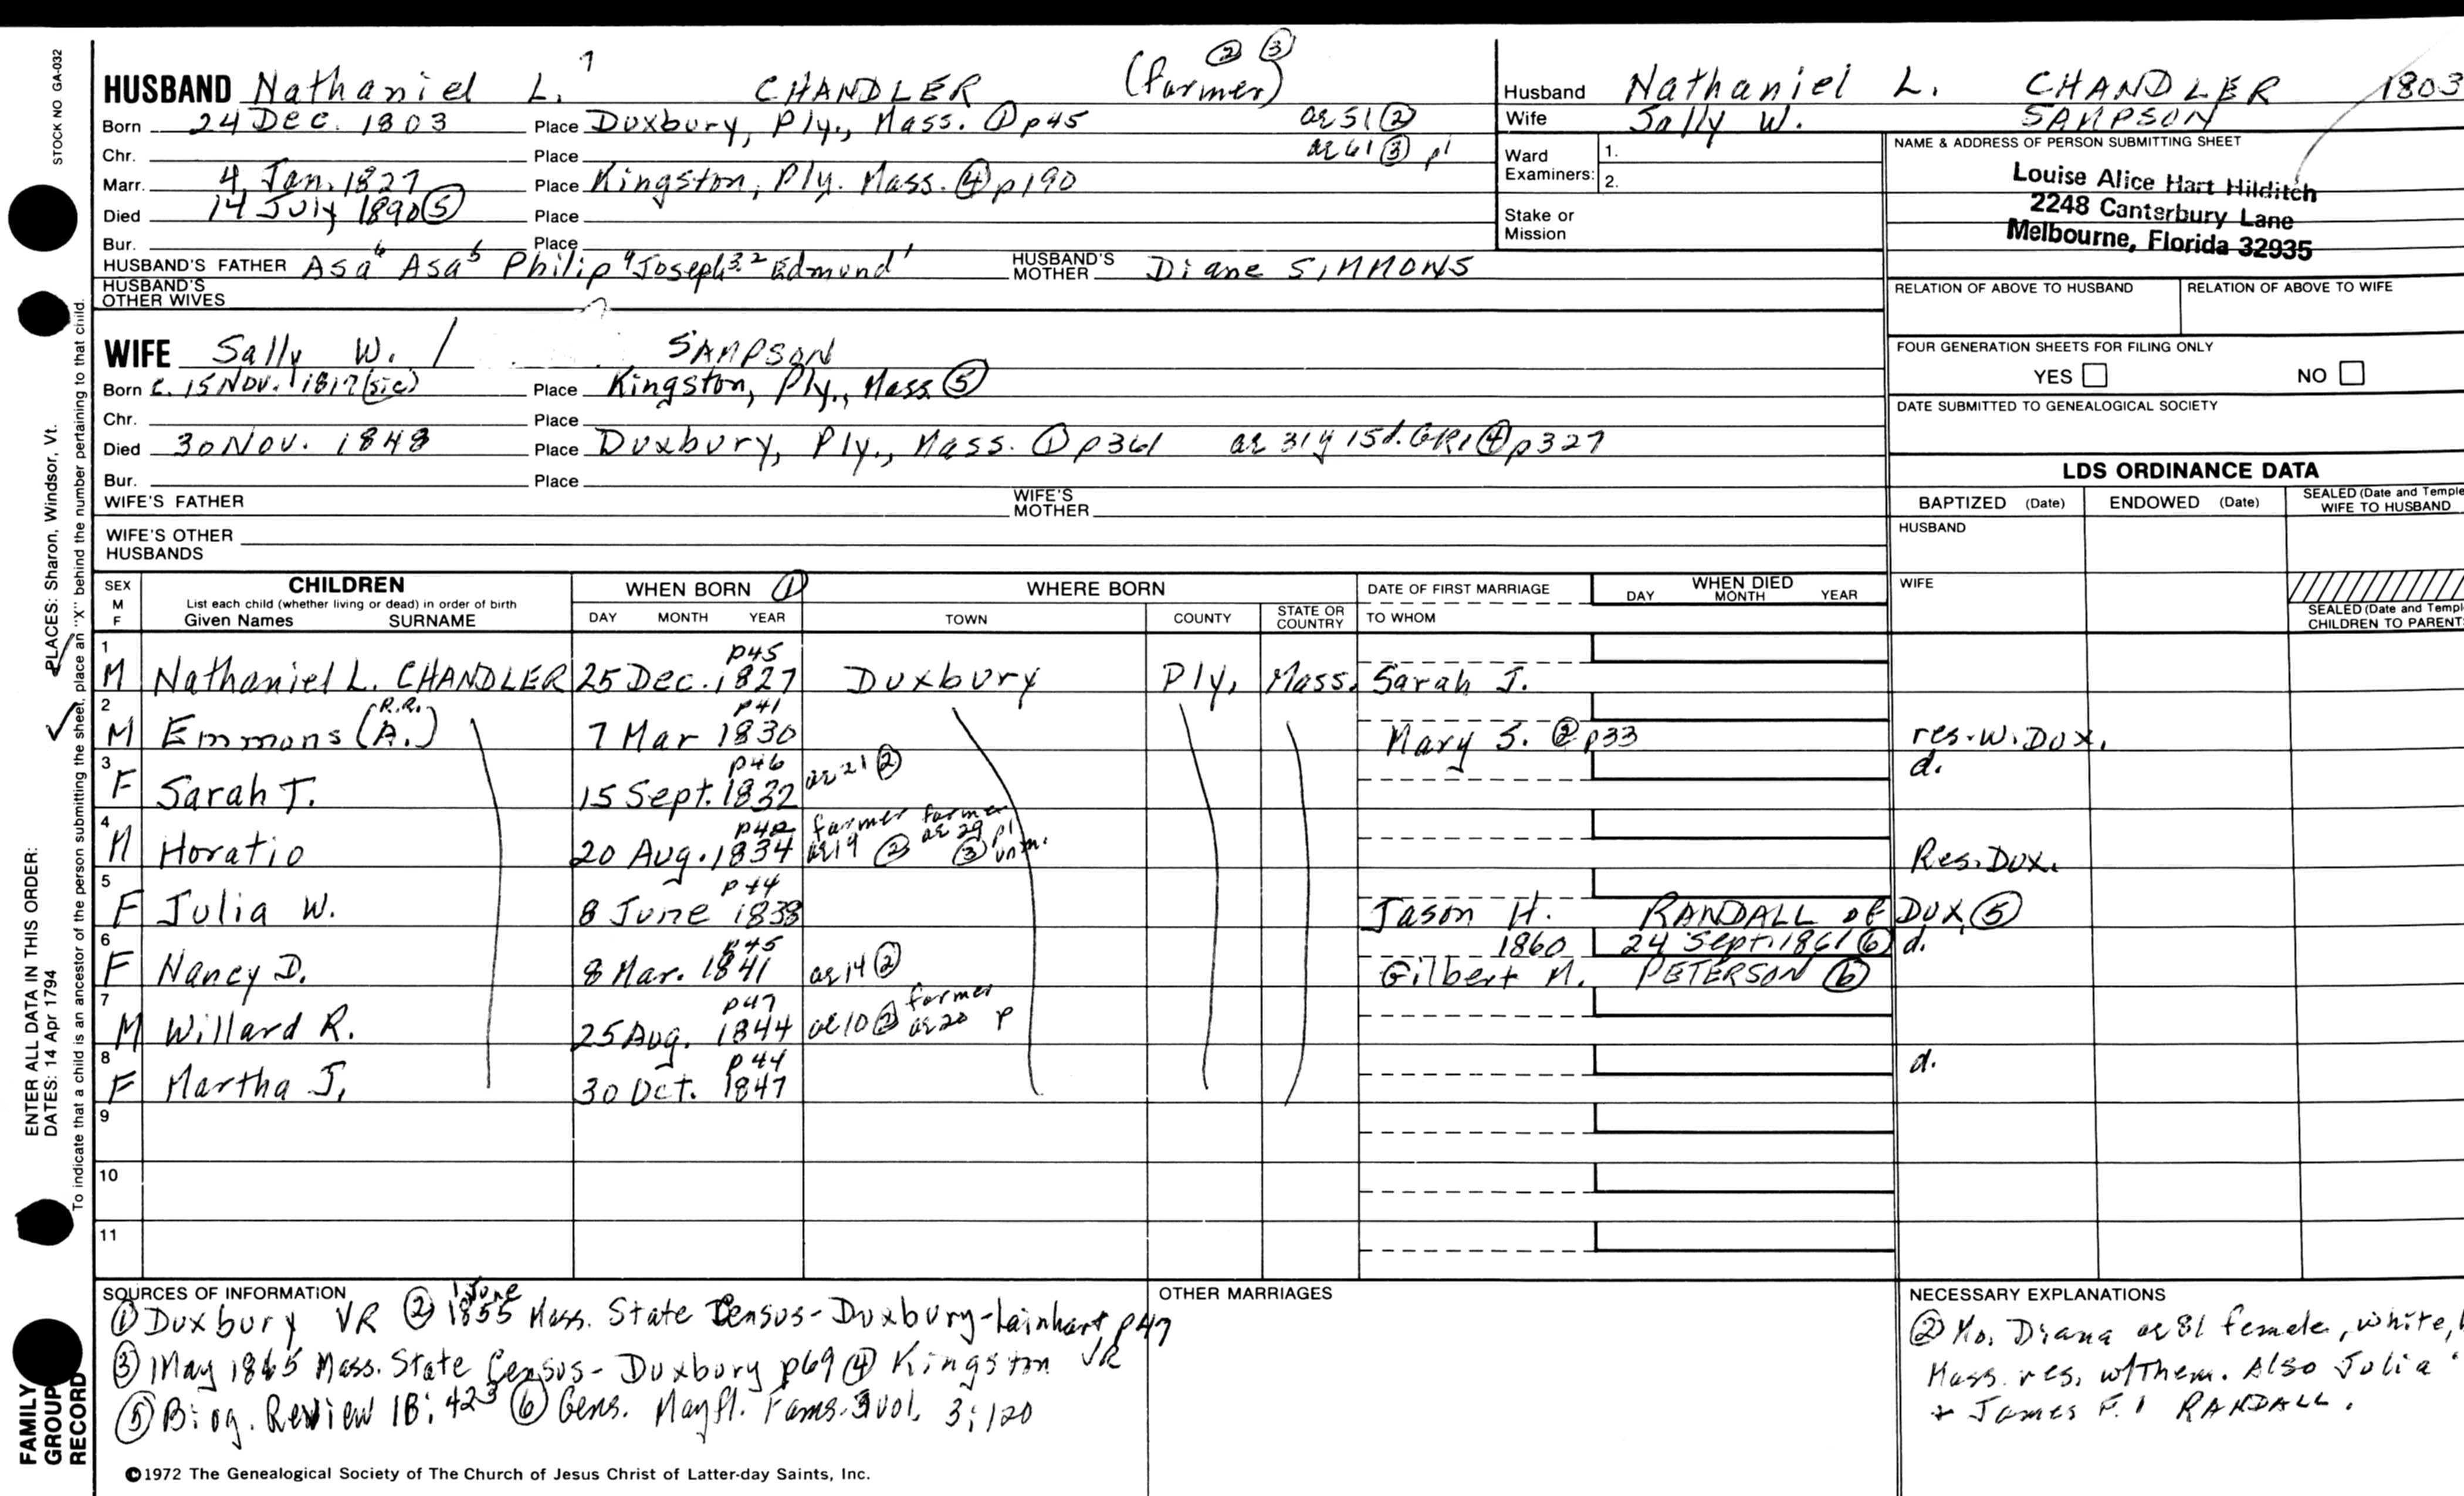 STOCK NO GA-032
HUSBAND Nathaniel L. 7 CHANDLER (farmer) ② ③
Born 24 Dec. 1803 Place Duxbury, Ply., Mass. ① p45 ae 51 ②
Chr. Place ae 61 ③ p1
Marr. 4 Jan. 1827 Place Kingston, Ply. Mass. ④ p190
Died 14 July 1890 ⑤ Place
Bur. Place
HUSBAND'S FATHER Asa6 Asa5 Philip4 Joseph3,2 Edmund1 HUSBAND'S MOTHER Diane SIMMONS
HUSBAND'S OTHER WIVES
WIFE Sally W. / SAMPSON
Born c. 15 Nov. 1817 (sic) Place Kingston, Ply., Mass ⑤
Chr. Place
Died 30 Nov. 1848 Place Duxbury, Ply., Mass. ① p361 ae 31y 15d. GR1 ④ p327
Bur. Place
WIFE'S FATHER WIFE'S MOTHER
WIFE'S OTHER HUSBANDS
Husband Nathaniel L. CHANDLER 1803
Wife Sally W. SAMPSON
Ward Examiners: 1.
2.
Stake or Mission
NAME & ADDRESS OF PERSON SUBMITTING SHEET
Louise Alice Hart Hilditch
2248 Canterbury Lane
Melbourne, Florida 32935
RELATION OF ABOVE TO HUSBAND RELATION OF ABOVE TO WIFE
FOUR GENERATION SHEETS FOR FILING ONLY
YES NO
DATE SUBMITTED TO GENEALOGICAL SOCIETY
LDS ORDINANCE DATA
BAPTIZED (Date) ENDOWED (Date) SEALED (Date and Temple
WIFE TO HUSBAND
HUSBAND
WIFE
SEALED (Date and Templ
CHILDREN TO PARENT
SEX M F CHILDREN WHEN BORN ① WHERE BORN DATE OF FIRST MARRIAGE WHEN DIED
List each child (whether living or dead) in order of birth
Given Names SURNAME DAY MONTH YEAR TOWN COUNTY STATE OR COUNTRY TO WHOM DAY MONTH YEAR
1 p45
M Nathaniel L. CHANDLER 25 Dec. 1827 Duxbury Ply, Mass. Sarah J.
2 (R.R.) p41
M Emmons (A.) 7 Mar 1830 Mary S. ② p33 res. W. Dux.
3 p46 d.
F Sarah T. 15 Sept. 1832 ae 21 ②
4 p42 farmer farmer
M Horatio 20 Aug. 1834 ae 19 ② ae 29 p1 ③ unm. Res. Dux.
5 p44
F Julia W. 8 June 1838 Jason H. RANDALL of Dux ⑤
6 p45 1860 24 Sept. 1861 ⑥ d.
F Nancy D. 8 Mar. 1841 ae 14 ② Gilbert M. PETERSON ⑥
7 p47 farmer
M Willard R. 25 Aug. 1844 ae 10 ② ae 20 p
8 p44 d.
F Martha J. 30 Oct. 1847
9
10
11
SOURCES OF INFORMATION
① Duxbury VR ② 1 June 1855 Mass. State Census - Duxbury - Lainhart p47
③ 1 May 1865 Mass. State Census - Duxbury p69 ④ Kingston VR
⑤ Biog. Review 18: 423 ⑥ Gens. Mayfl. Fams. 3 vol. 3:120
OTHER MARRIAGES
NECESSARY EXPLANATIONS
② Mo. Diana ae 81 female, white,
Mass. res. w/them. Also Julia
+ James F. RANDALL.
©1972 The Genealogical Society of The Church of Jesus Christ of Latter-day Saints, Inc.
ENTER ALL DATA IN THIS ORDER:
DATES: 14 Apr 1794
PLACES: Sharon, Windsor, Vt.
To indicate that a child is an ancestor of the person submitting the sheet, place an "X" behind the number pertaining to that child.
FAMILY GROUP RECORD